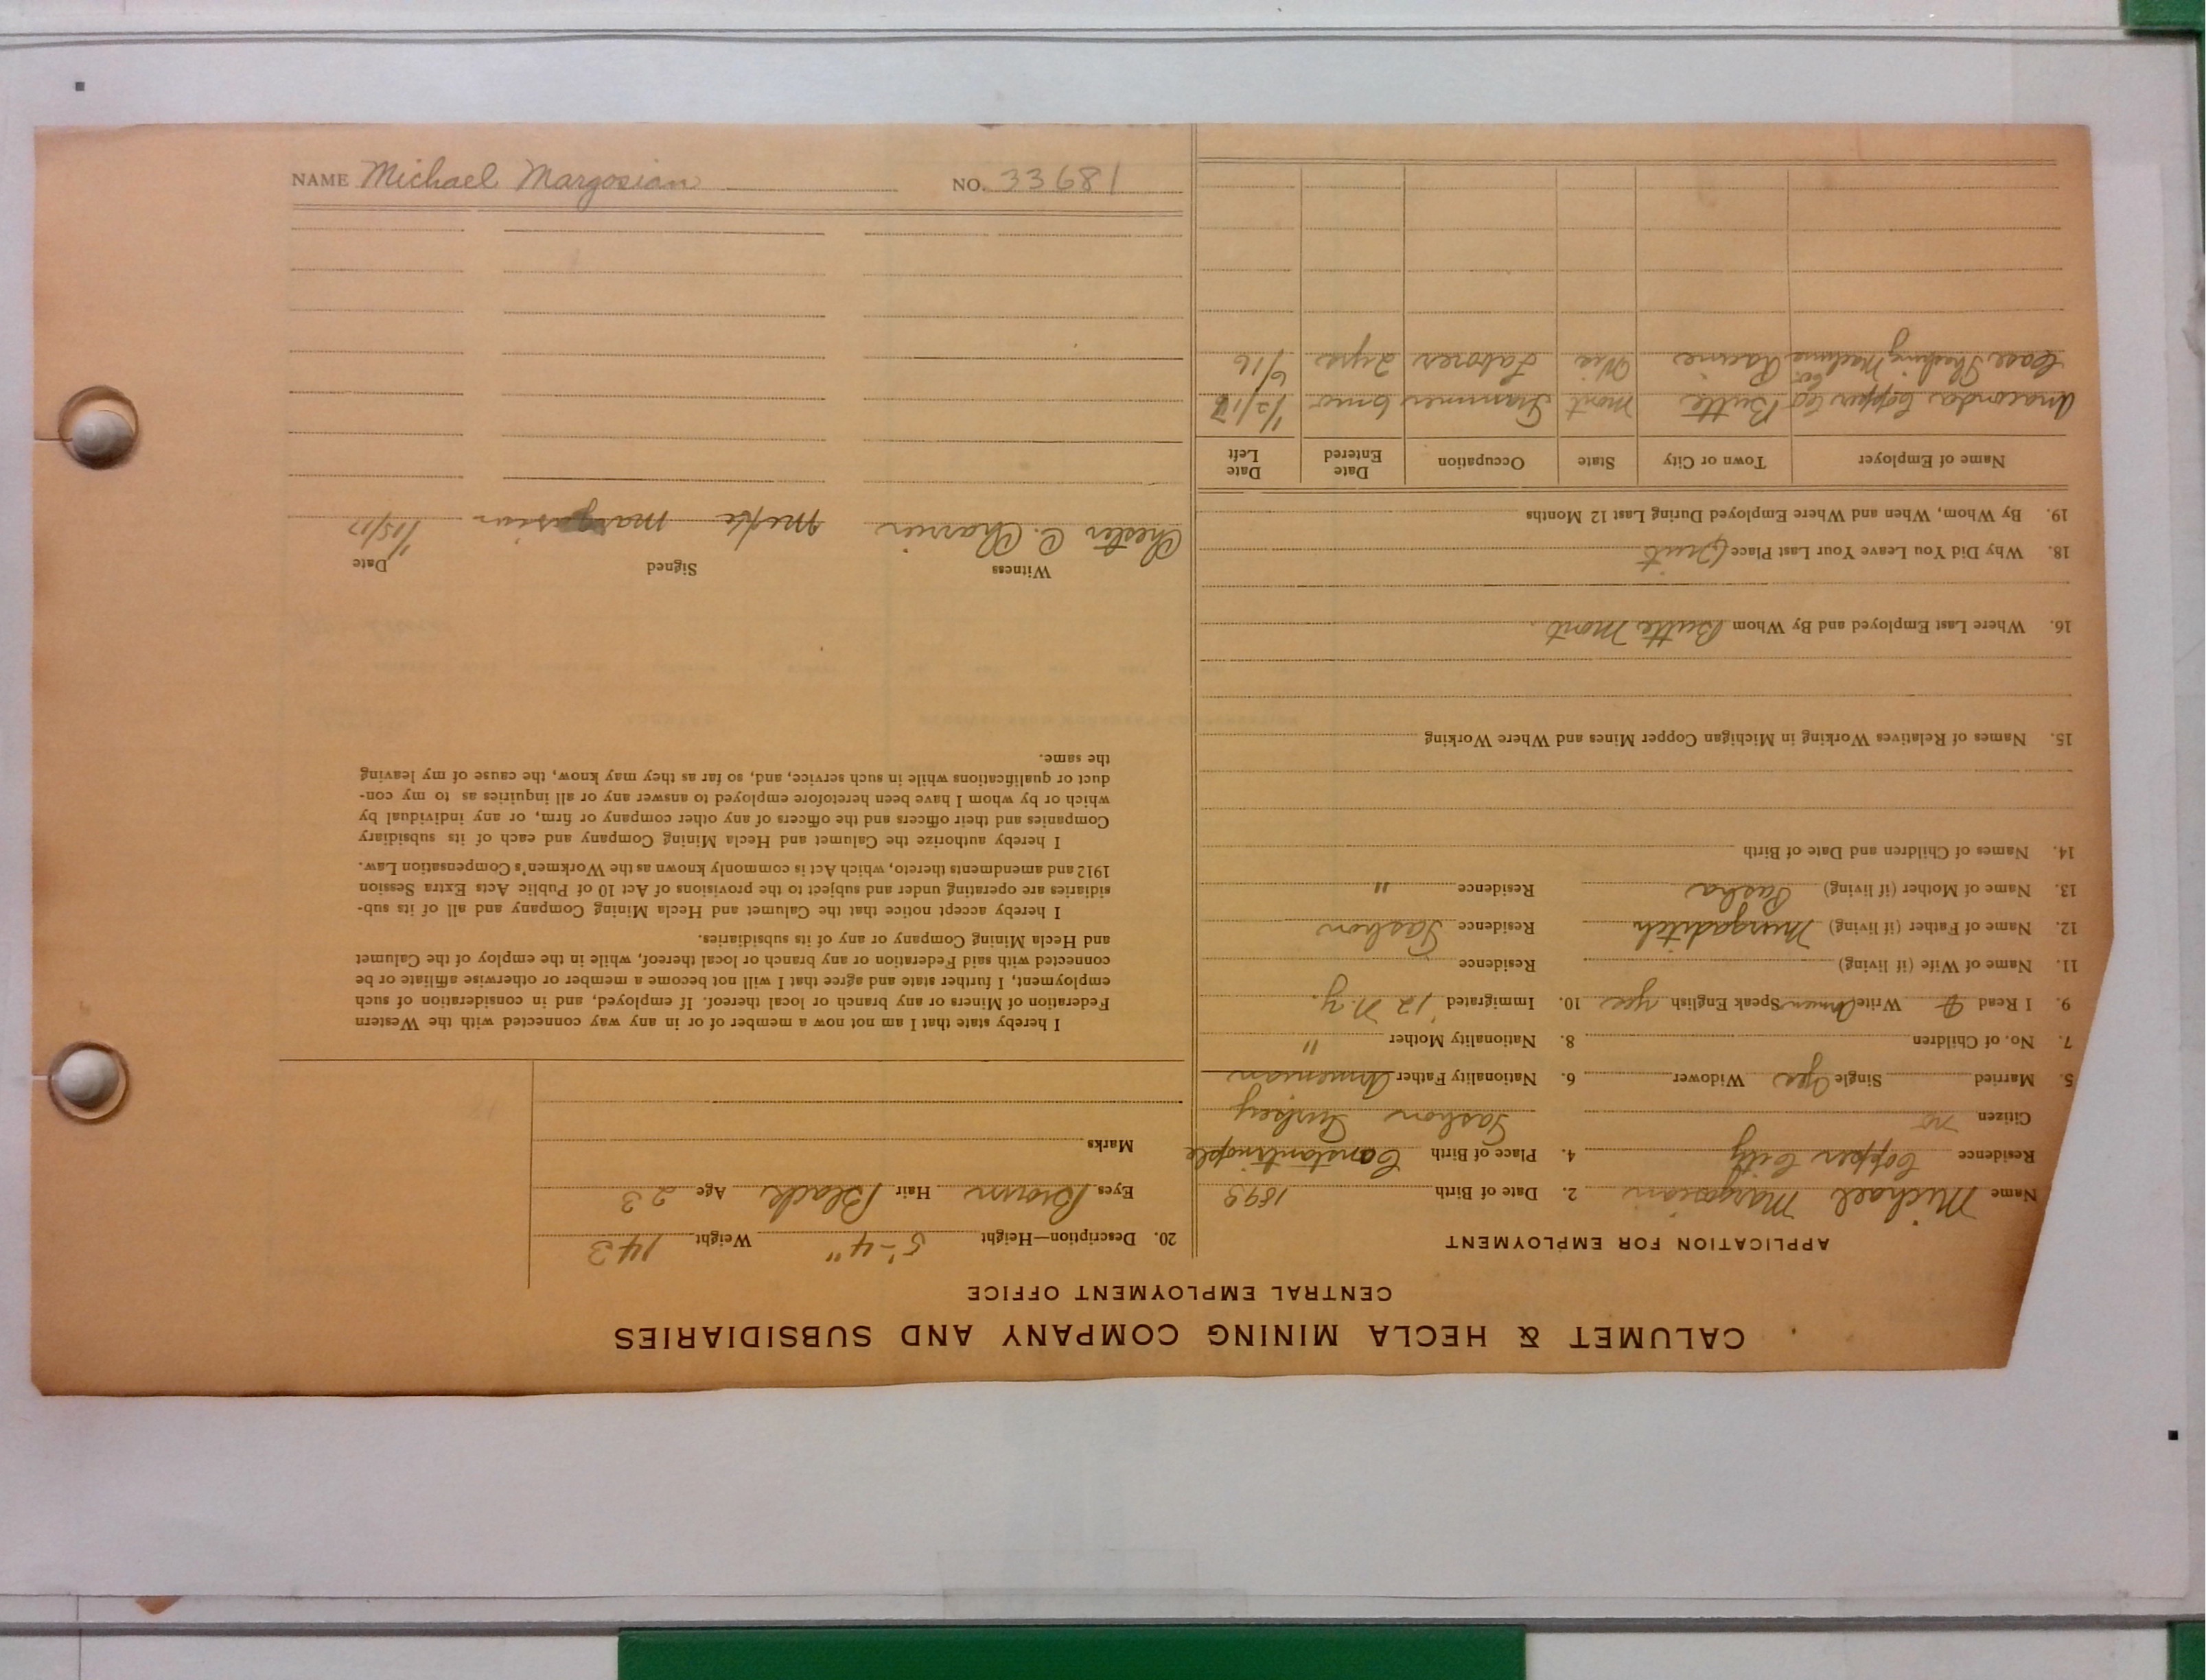 NAME Michael Margosian NO. 33681
CALUMET & HECLA MINING COMPANY AND SUBSIDIARIES
CENTRAL EMPLOYMENT OFFICE
APPLICATION FOR EMPLOYMENT
Name Michael Margosian 2. Date of Birth 1893
Residence Copper City 4. Place of Birth Constantinople
Citizen no Tashon Turkey
5. Married Single yes Widower 6. Nationality Father Armenian
7. No. of Children 8. Nationality Mother "
9. I Read & Write Armen Speak English yes 10. Immigrated '12 N.Y.
11. Name of Wife (if living) Residence
12. Name of Father (if living) Murgaditch Residence Tashon
13. Name of Mother (if living) Residence "
14. Names of Children and Date of Birth
15. Names of Relatives Working in Michigan Copper Mines and Where Working
16. Where Last Employed and By Whom Butte Mont.
18. Why Did You Leave Your Last Place Quit
19. By Whom, When and Where Employed During Last 12 Months
Name of Employer Town or City State Occupation Date Entered Date Left
Anaconda Copper Co Butte Mont Trammer 6 mos 1/2/17
Case Thashing Machine Co. Racine Wis Laborer 2 yrs 6/16
20. Description—Height 5'-4" Weight 143
Eyes Brown Hair Black Age 23
Marks
I hereby state that I am not now a member of or in any way connected with the Western
Federation of Miners or any branch or local thereof. If employed, and in consideration of such
employment, I further state and agree that I will not become a member or otherwise affiliate or be
connected with said Federation or any branch or local thereof, while in the employ of the Calumet
and Hecla Mining Company or any of its subsidiaries.
I hereby accept notice that the Calumet and Hecla Mining Company and all of its sub-
sidiaries are operating under and subject to the provisions of Act 10 of Public Acts Extra Session
1912 and amendments thereto, which Act is commonly known as the Workmen's Compensation Law.
I hereby authorize the Calumet and Hecla Mining Company and each of its subsidiary
Companies and their officers and the officers of any other company or firm, or any individual by
which or by whom I have been heretofore employed to answer any or all inquiries as to my con-
duct or qualifications while in such service, and, so far as they may know, the cause of my leaving
the same.
Witness Signed Date
Chester C. Charrier margosian 1/15/17